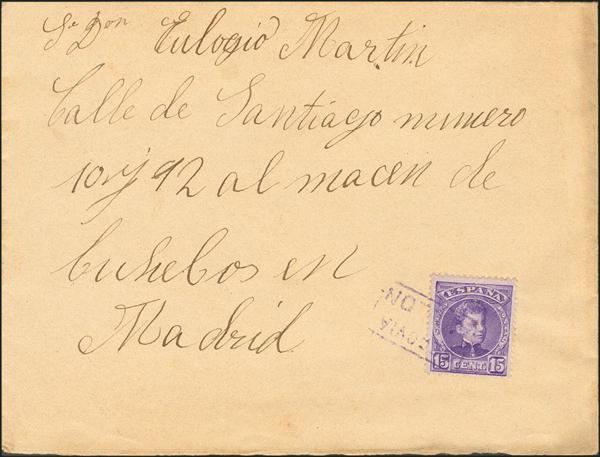 Sr Don Eulogio Martin
Calle de Santiago numero
10 y 92 al macen de
huhebos en
Madrid
ESPAÑA
15 CENT.s 15